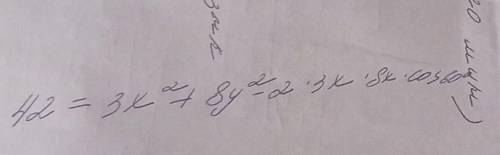 42 = 3x² + 8y² - 2 · 3x · 8x · cos60°